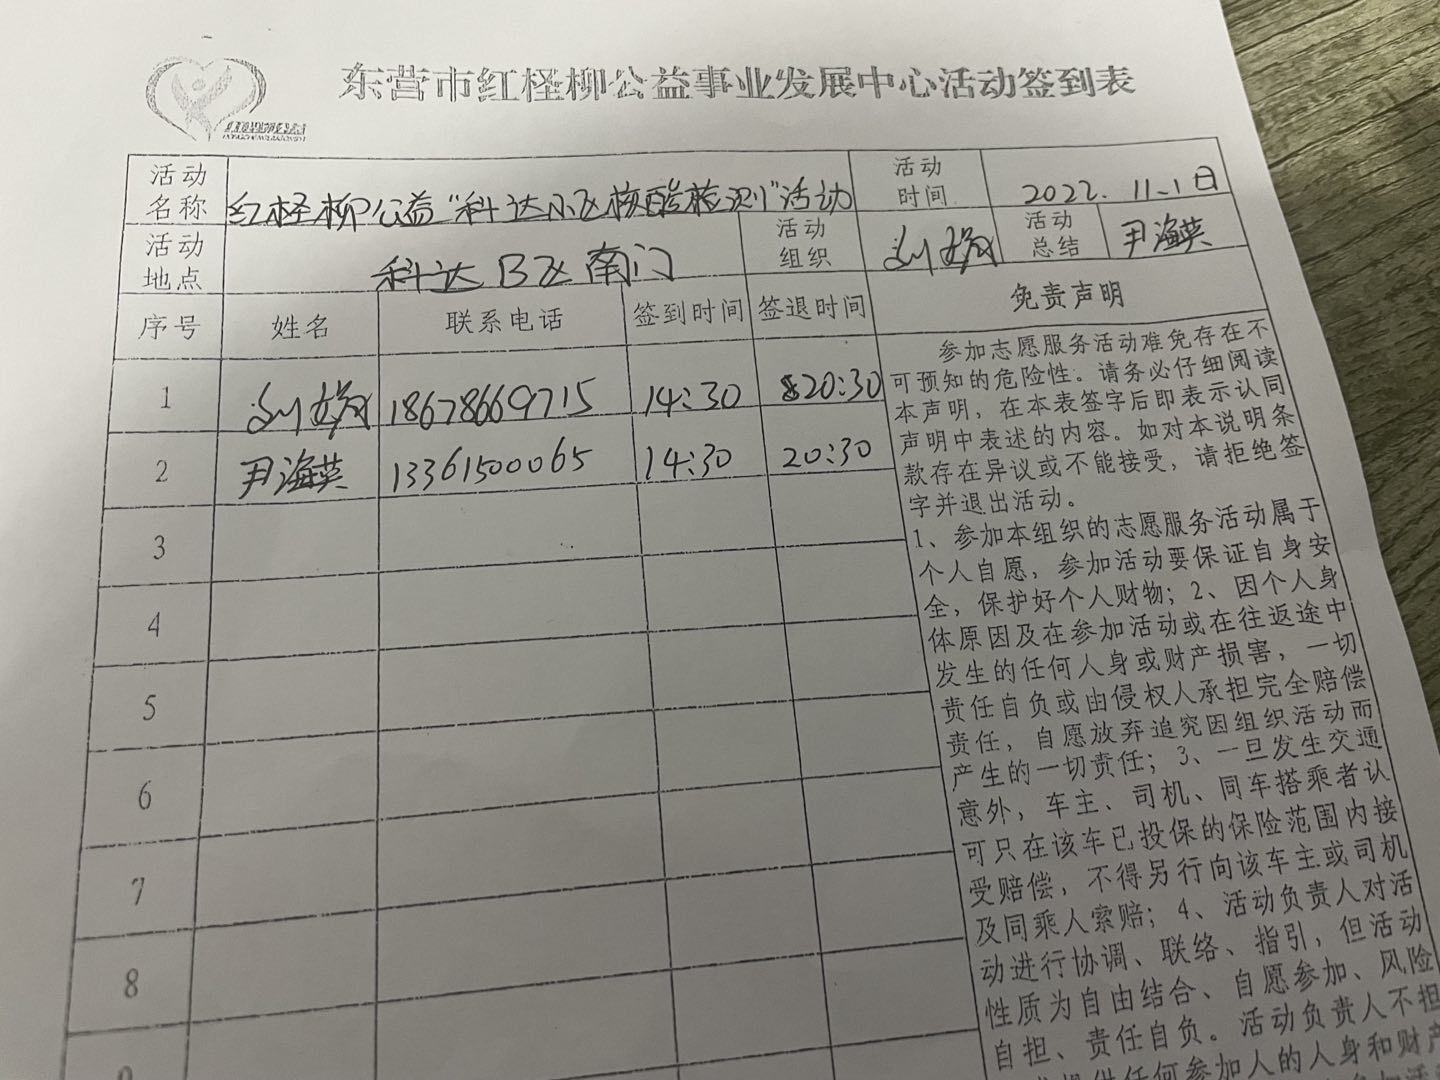 东营市红柽柳公益事业发展中心活动签到表
活动名称 红柽柳公益“科达小区核酸检测”活动 活动时间 2022.11.1日
活动地点 科达B区南门 活动组织 刘 活动总结 尹海英
序号 姓名 联系电话 签到时间 签退时间 免责声明
1 刘 18678669715 14:30 20:30
2 尹海英 13361500065 14:30 20:30
3
4
5
6
7
8
9
参加志愿服务活动难免存在不
可预知的危险性。请务必仔细阅读
本声明，在本表签字后即表示认同
声明中表述的内容。如对本说明条
款存在异议或不能接受，请拒绝签
字并退出活动。
1、参加本组织的志愿服务活动属于
个人自愿，参加活动要保证自身安
全，保护好个人财物；2、因个人身
体原因及在参加活动或在往返途中
发生的任何人身或财产损害，一切
责任自负或由侵权人承担完全赔偿
责任，自愿放弃追究因组织活动而
产生的一切责任；3、一旦发生交通
意外，车主、司机、同车搭乘者认
可只在该车已投保的保险范围内接
受赔偿，不得另行向该车主或司机
及同乘人索赔；4、活动负责人对活
动进行协调、联络、指引，但活动
性质为自由结合、自愿参加、风险
自担、责任自负。活动负责人不担
提供任何参加人的人身和财产